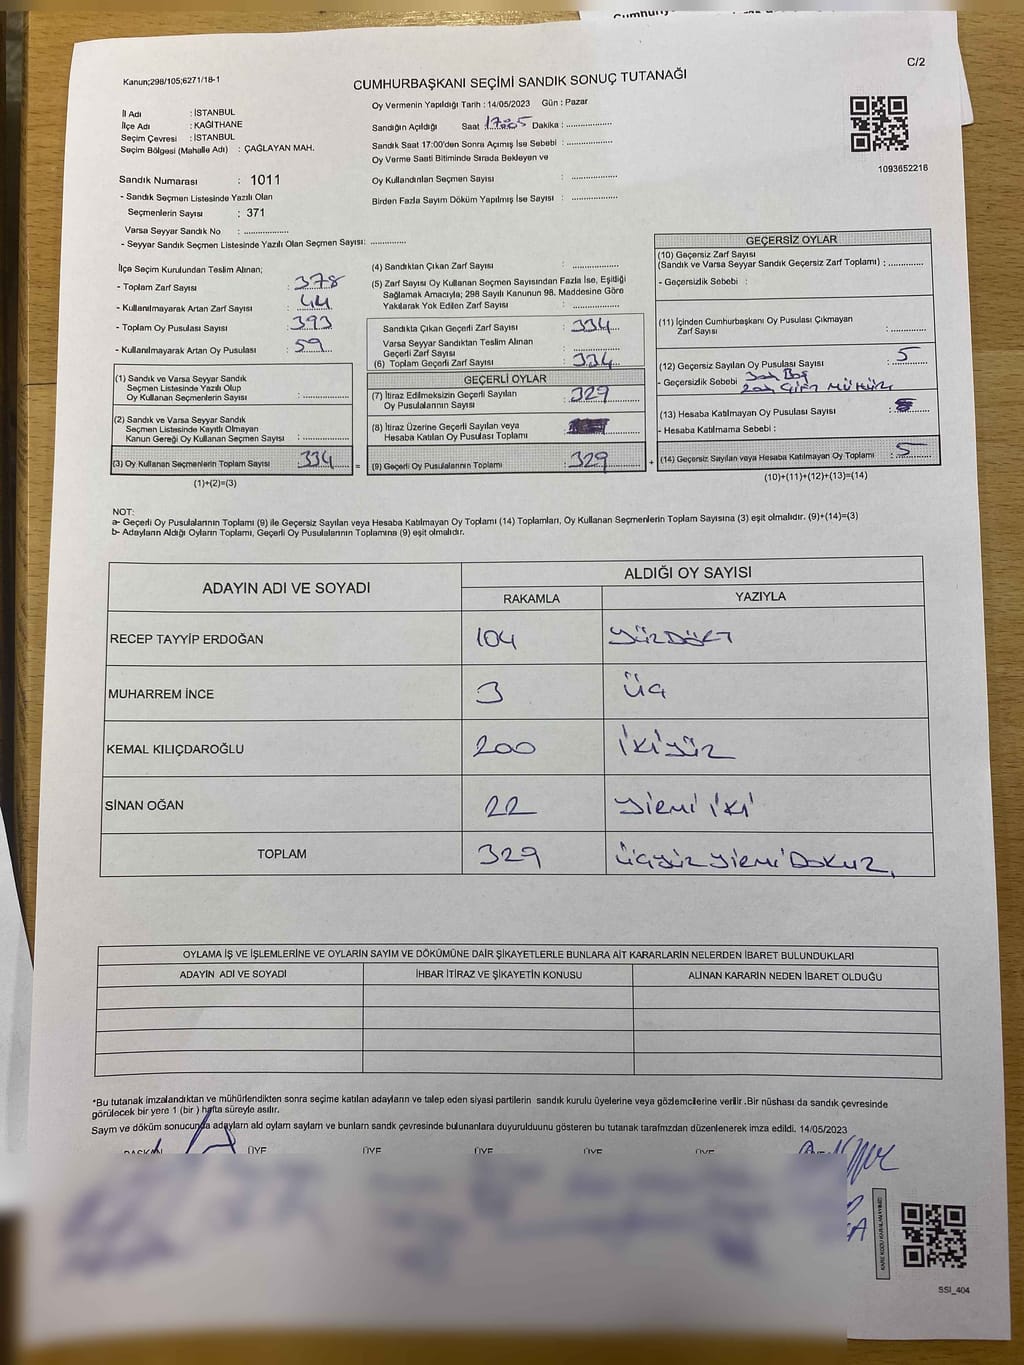 Kanun;298/105;6271/18-1
CUMHURBAŞKANI SEÇİMİ SANDIK SONUÇ TUTANAĞI
C/2
İl Adı : İSTANBUL
İlçe Adı : KAĞITHANE
Seçim Çevresi : İSTANBUL
Seçim Bölgesi (Mahalle Adı) : ÇAĞLAYAN MAH.
Sandık Numarası : 1011
- Sandık Seçmen Listesinde Yazılı Olan
Seçmenlerin Sayısı : 371
Varsa Seyyar Sandık No : ..............
- Seyyar Sandık Seçmen Listesinde Yazılı Olan Seçmen Sayısı: ............
Oy Vermenin Yapıldığı Tarih : 14/05/2023 Gün : Pazar
Sandığın Açıldığı Saat Dakika : ..............
Sandık Saat 17:00'den Sonra Açımış İse Sebebi : ..............
Oy Verme Saati Bitiminde Sırada Bekleyen ve
Oy Kullandırılan Seçmen Sayısı : ..............
Birden Fazla Sayım Döküm Yapılmış İse Sayısı : ..............
1093652216
İlçe Seçim Kurulundan Teslim Alınan;
- Toplam Zarf Sayısı : 378
- Kullanılmayarak Artan Zarf Sayısı : 44
- Toplam Oy Pusulası Sayısı : 393
- Kullanılmayarak Artan Oy Pusulası : 59
(1) Sandık ve Varsa Seyyar Sandık
Seçmen Listesinde Yazılı Olup
Oy Kullanan Seçmenlerin Sayısı : ..............
(2) Sandık ve Varsa Seyyar Sandık
Seçmen Listesinde Kayıtlı Olmayan
Kanun Gereği Oy Kullanan Seçmen Sayısı : ..............
(3) Oy Kullanan Seçmenlerin Toplam Sayısı : 334
(1)+(2)=(3)
(4) Sandıktan Çıkan Zarf Sayısı : ..............
(5) Zarf Sayısı Oy Kullanan Seçmen Sayısından Fazla İse, Eşitliği
Sağlamak Amacıyla; 298 Sayılı Kanunun 98. Maddesine Göre
Yakılarak Yok Edilen Zarf Sayısı : ..............
Sandıkta Çıkan Geçerli Zarf Sayısı : 334
Varsa Seyyar Sandıktan Teslim Alınan
Geçerli Zarf Sayısı : ..............
(6) Toplam Geçerli Zarf Sayısı : 334
GEÇERLİ OYLAR
(7) İtiraz Edilmeksizin Geçerli Sayılan
Oy Pusulalarının Sayısı : 329
(8) İtiraz Üzerine Geçerli Sayılan veya
Hesaba Katılan Oy Pusulası Toplamı :
= (9) Geçerli Oy Pusulalarının Toplamı : 329 +
GEÇERSİZ OYLAR
(10) Geçersiz Zarf Sayısı
(Sandık ve Varsa Seyyar Sandık Geçersiz Zarf Toplamı) : ............
- Geçersizlik Sebebi :
(11) İçinden Cumhurbaşkanı Oy Pusulası Çıkmayan
Zarf Sayısı : ............
(12) Geçersiz Sayılan Oy Pusulası Sayısı : 5
- Geçersizlik Sebebi Boş
Çift Mühür
(13) Hesaba Katılmayan Oy Pusulası Sayısı :
- Hesaba Katılmama Sebebi :
(14) Geçersiz Sayılan veya Hesaba Katılmayan Oy Toplamı : 5
(10)+(11)+(12)+(13)=(14)
NOT:
a- Geçerli Oy Pusulalarının Toplamı (9) ile Geçersiz Sayılan veya Hesaba Katılmayan Oy Toplamı (14) Toplamları, Oy Kullanan Seçmenlerin Toplam Sayısına (3) eşit olmalıdır. (9)+(14)=(3)
b- Adayların Aldığı Oyların Toplamı, Geçerli Oy Pusulalarının Toplamına (9) eşit olmalıdır.
ADAYIN ADI VE SOYADI ALDIĞI OY SAYISI
RAKAMLA YAZIYLA
RECEP TAYYİP ERDOĞAN 104 YÜZDÖRT
MUHARREM İNCE 3 Üç
KEMAL KILIÇDAROĞLU 200 İKİYÜZ
SİNAN OĞAN 22 YİRMİ İKİ
TOPLAM 329 ÜçYÜZ YİRMİ DOKUZ
OYLAMA İŞ VE İŞLEMLERİNE VE OYLARIN SAYIM VE DÖKÜMÜNE DAİR ŞİKAYETLERLE BUNLARA AİT KARARLARIN NELERDEN İBARET BULUNDUKLARI
ADAYIN ADI VE SOYADI İHBAR İTİRAZ VE ŞİKAYETİN KONUSU ALINAN KARARIN NEDEN İBARET OLDUĞU
*Bu tutanak imzalandıktan ve mühürlendikten sonra seçime katılan adayların ve talep eden siyasi partilerin sandık kurulu üyelerine veya gözlemcilerine verilir .Bir nüshası da sandık çevresinde
görülecek bir yere 1 (bir ) hafta süreyle asılır.
Sayım ve döküm sonucunda adayların ald oyların sayları ve bunların sandk çevresinde bulunanlara duyurulduunu gösteren bu tutanak tarafmzdan düzenlenerek imza edildi. 14/05/2023
BAŞKAN ÜYE ÜYE ÜYE ÜYE ÜYE
SSI_404